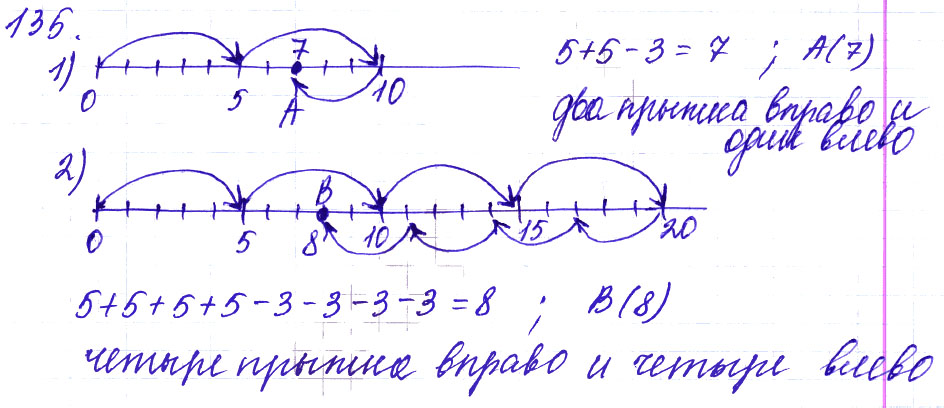 135.
1) 0 5 7 A 10
5+5-3=7 ; A(7)
два прыжка вправо и
один влево
2) 0 5 8 B 10 15 20
5+5+5+5-3-3-3-3=8 ; B(8)
четыре прыжка вправо и четыре влево